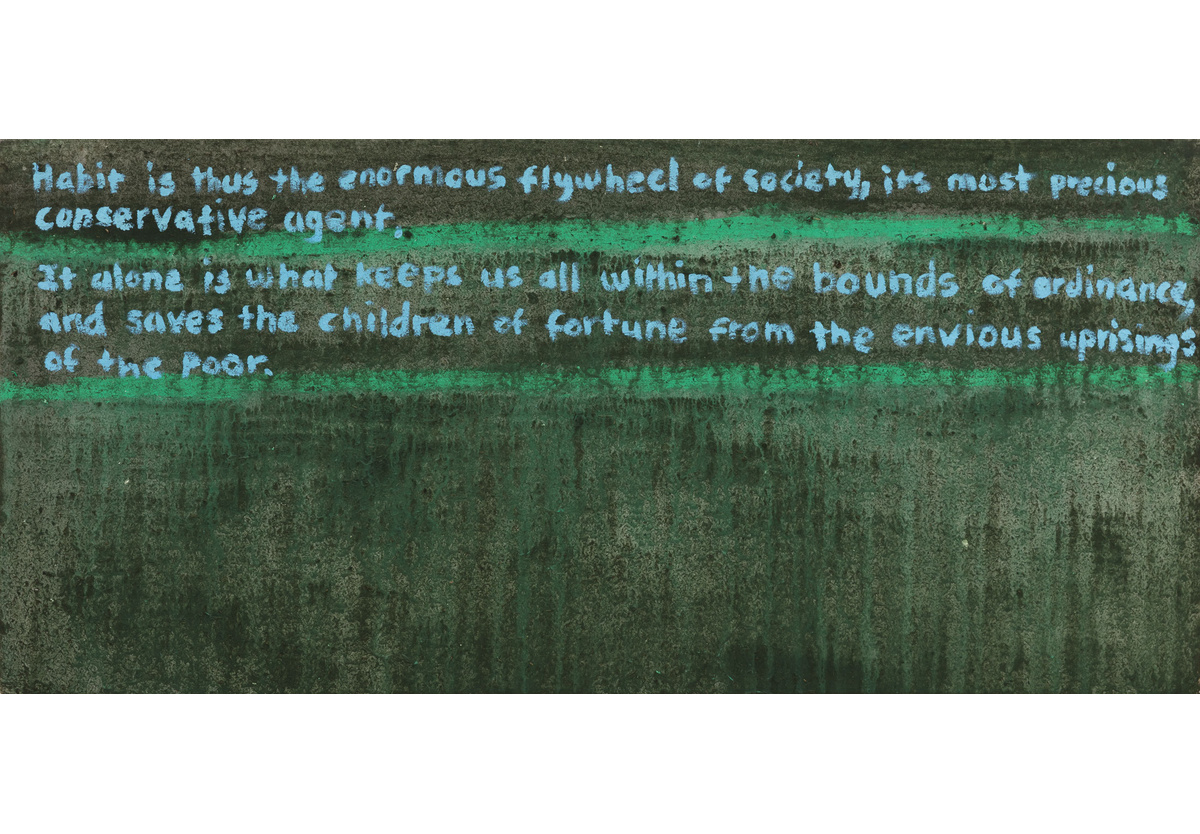 Habit is thus the enormous flywheel of society, its most precious
conservative agent,
It alone is what keeps us all within the bounds of ordinance,
and saves the children of fortune from the envious uprisings
of the poor.